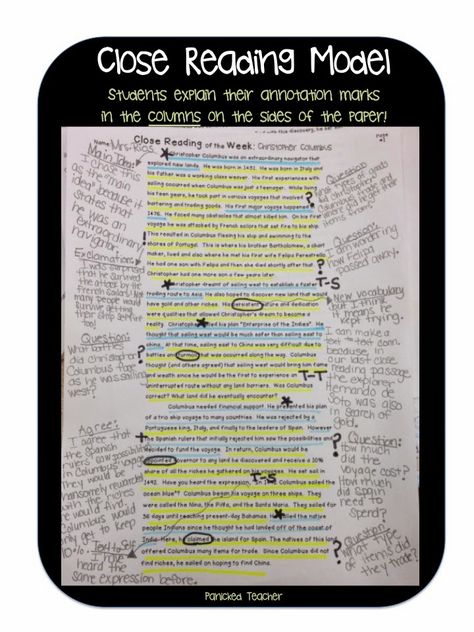 Close Reading Model
Students explain their annotation marks
in the columns on the sides of the paper!
with this discovery, he set
Page #1
Name: Mrs. Rios
Close Reading of the Week: Christopher Columbus
Christopher Columbus was an extraordinary navigator that
explored new lands. He was born in 1451. He was born in Italy and
his father was a working class weaver. His first experiences with
sailing occurred when Columbus was just a teenager. While living
his teen years, he took part in various voyages that involved
bartering and trading goods. His first major voyage happened in
1476. He faced many obstacles that almost killed him. On his first
voyage he was attacked by French sailors that set fire to his ship.
This resulted in Columbus fleeing his ship and swimming to the
shores of Portugal. This is where his brother Bartholomew, a chart
maker, lived and also where he met his first wife Felipa Perestrello.
He had one son with Felipa and then she died shortly after that
Christopher had one more son a few years later.
Christopher dreamt of sailing west to establish a faster T-S
trading route to Asia. He also hoped to discover new land that would
have gold and other riches. His persistent nature and dedication
were qualities that allowed Christopher's dream to become a
reality. Christopher called his plan "Enterprise of the Indies". He
thought that sailing west would be much safer than sailing east to
china. At that time, sailing east to China was very difficult due to
battles and turmoil that was occurring along the way. Columbus
thought (and others agreed) that sailing west would bring him fame
and wealth since he would be the first to experience an T-T
uninterrupted route without any land barriers. Was Columbus
correct? What land did he eventually encounter?
Columbus needed financial support. He presented his plan
of a trio ship voyage to many countries. He was rejected by a
Portuguese king, Italy, and finally to the leaders of Spain. However
the Spanish rulers that initially rejected him saw the possibilities and
decided to fund the voyage. In return, Columbus would be
appointed governor to any land he discovered and receive a 10%
share of all the riches he gathered on his voyages. He set sail in
1492. Have you heard the expression, "In 1492 Columbus sailed the
ocean blue"? Columbus began his voyage on three ships. They
were called the Nina, the Pinta, and the Santa Maria. They sailed for
36 days until reaching present-day Bahamas. He called the native
people Indians since he thought he had landed off of the coast of
India. Here, he claimed the island for Spain. The natives of this land
offered Columbus many items for trade. Since Columbus did not
find riches, he sailed on hoping to find China.
T-S
Main Idea:
I chose this
as the main
idea because it
states that
he was an
extraordinary
navigator.
Exclamation:
I was surprised
that he survived
the attack by the
French sailors! Not
many people would
survive getting
their ship set
Question:
What battles
did Christopher
Columbus face
as he was sailing
west?
Agree:
I agree that
the Spanish
rulers saw possibility
in Columbus' voyage
they would be
handsomely rewarded
with the riches
he would find!
Columbus would
only get to keep
10%.
Text to Self
I have
heard the
same expression before.
Question:
What types of goods
did Christopher
Columbus trade and
items
Question:
I am wondering
how Felipa
passed away.
New Vocabulary
I think it
means he
kept trying.
I can make a
text conn.
because in
our last close
reading passage
the explorer
Hernando de
Soto was also
in search of
gold.
Question:
How much
did the
voyage cost?
How much
did Spain
need to
spend?
Question:
What type
of items did
they trade?
Panicked Teacher